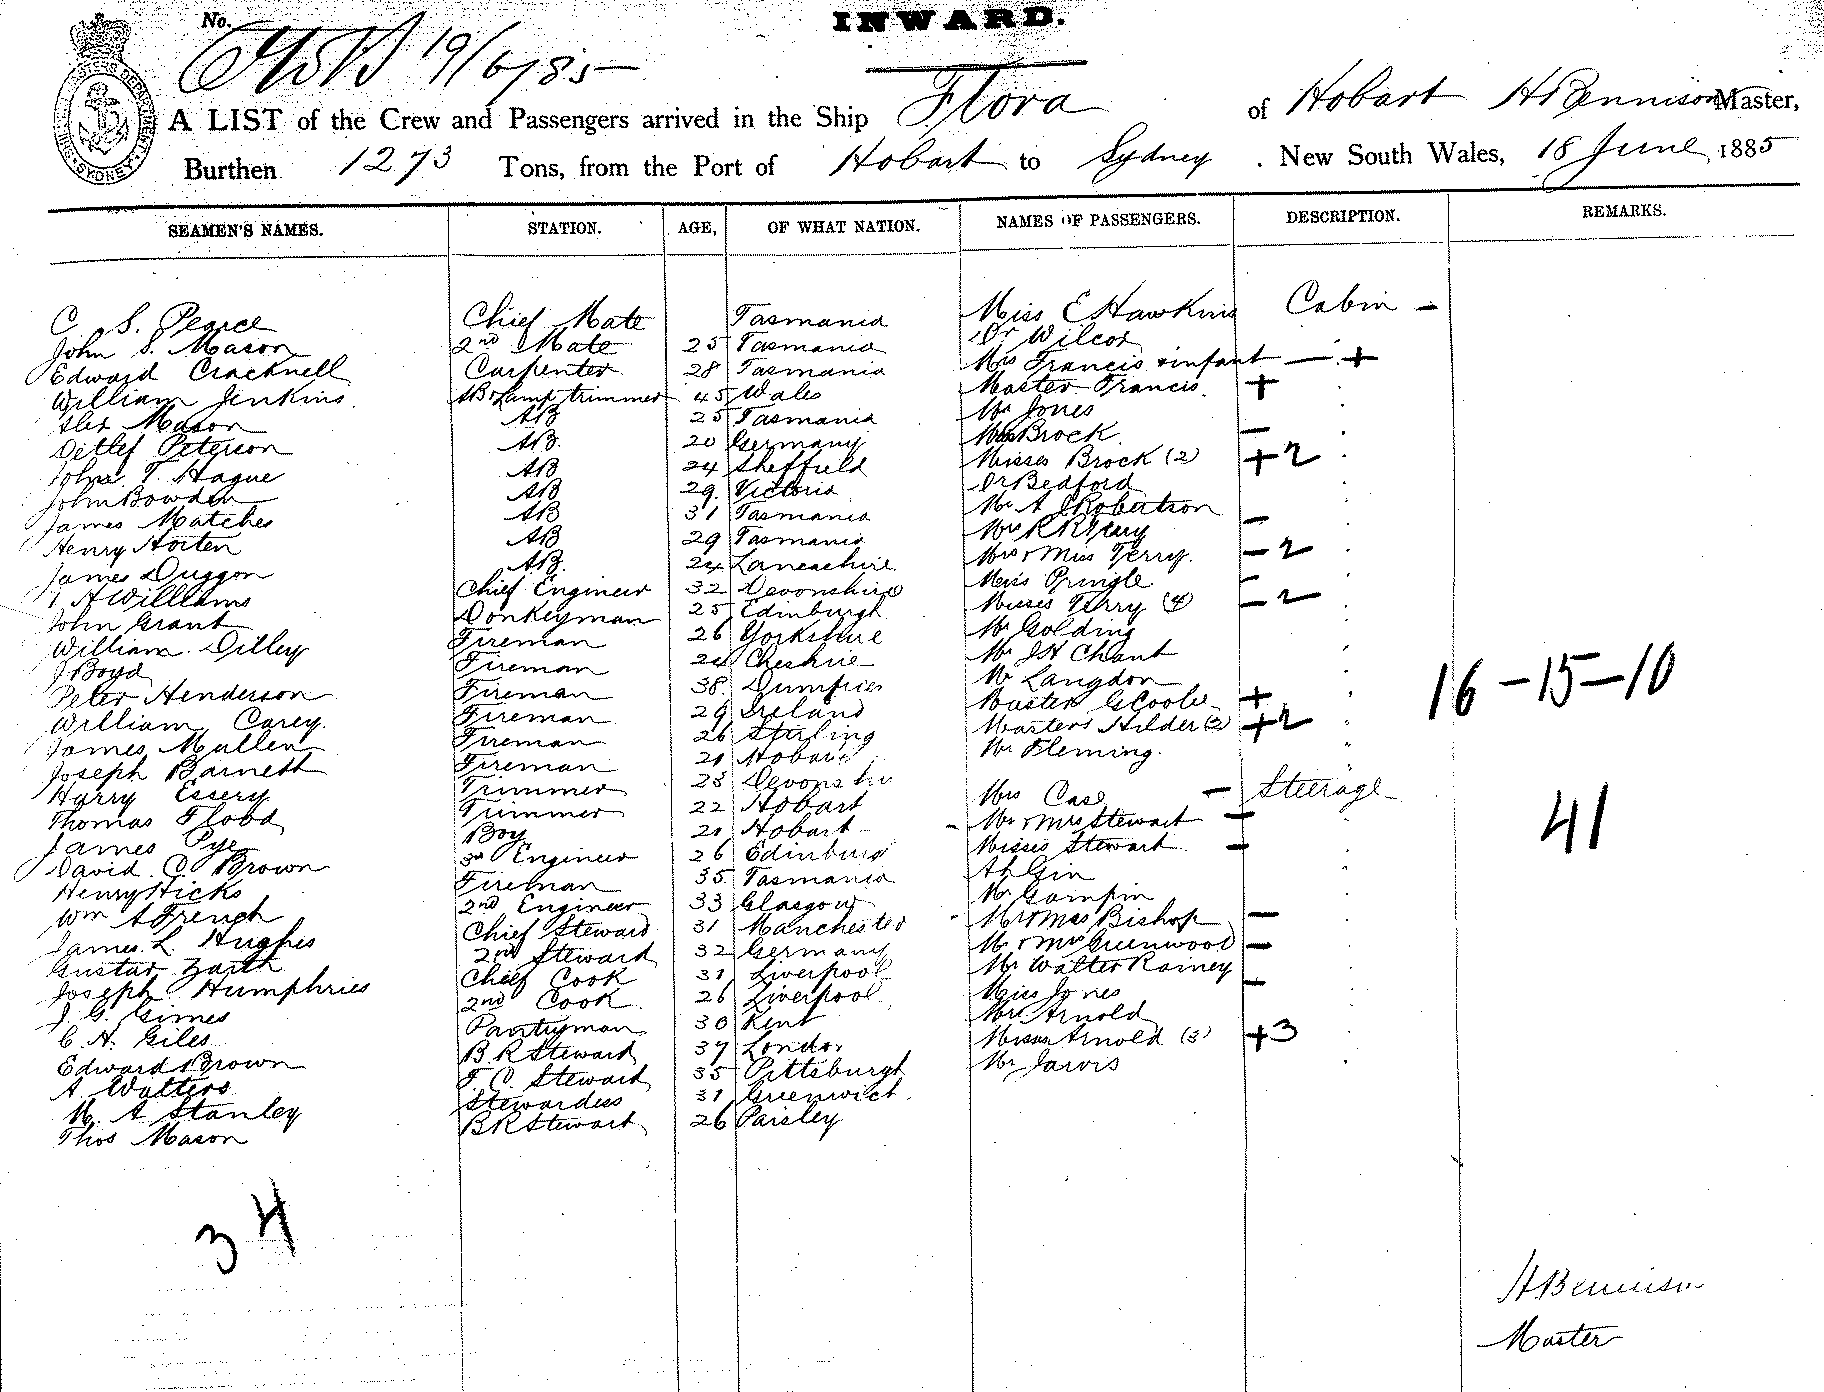 INWARD.
No.
19/6/85
A LIST of the Crew and Passengers arrived in the Ship Flora of Hobart H Bennison Master,
Burthen 1273 Tons, from the Port of Hobart to Sydney . New South Wales, 18 June 1885
SEAMEN'S NAMES. STATION. AGE, OF WHAT NATION. NAMES OF PASSENGERS. DESCRIPTION. REMARKS.
C. S. Pearce Chief Mate Tasmania Miss E Hawkins Cabin -
John S. Mason 2nd Mate 25 Tasmania Dr Wilcox
Edward Cracknell Carpenter 28 Tasmania Mrs Francis & infant — +
William Jenkins AB & Lamp trimmer 45 Wales Master Francis +
Alex Mason AB 25 Tasmania Mr Jones
Detlef Peterson AB 20 Germany Brock —
John T. Hague AB 24 Sheffield Misses Brock (2) +2
John Bowden AB 29 Victoria Dr Bedford
James Matches AB 31 Tasmania Mr A Robertson
Henry Horten AB 29 Tasmania Mrs —
James Duggon AB 24 Lancashire Mrs & Miss Terry -2
A Williams Chief Engineer 32 Devonshire Miss Pringle -
John Grant Donkeyman 25 Edinburgh Misses Terry (4) -2
William Dilley Fireman 26 Yorkshire Mr Golding
J Boyd Fireman Cheshire Mr J H Chant
Peter Henderson Fireman 38 Dumfries Mr Langdon
William Carey Fireman 29 Ireland Master G +
James Mullen Fireman 26 Stirling Masters Hilder (2) +2
Joseph Barnett Fireman 21 Hobart Mr Fleming
Harry Essery Trimmer 23 Devonshire Mrs Case - Steerage
Thomas Trimmer 22 Hobart Mr & Mrs Stewart -
James Pye Boy 21 Hobart Misses Stewart -
David C. Brown 3rd Engineer 26 Edinburg Ah Gin
Henry Hicks Fireman 35 Tasmania Mr
Wm A French 2nd Engineer 33 Glasgow Mr & Mrs Bishop -
James L. Hughes Chief Steward 31 Manchester Mr & Mrs Greenwood -
Gustav 2nd Steward 32 Germany Mr Walter Rainey
Joseph Humphries Chief Cook 31 Liverpool Miss Jones -
J. G. Gimes 2nd Cook 26 Liverpool Mr Arnold
C. H. Giles Pantryman 30 Kent Misses Arnold (3) +3
Edward Brown B R Steward 37 London Mr Jarvis
A Watters F. C. Steward 35 Pittsburgh
M. A Stanley Stewardess 31 Greenwich
Thos Mason B R Steward 26 Paisley
16-15-10
41
34
H Bennison
Master